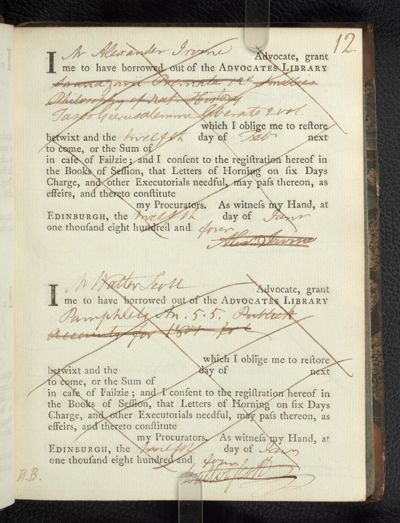 12.
I Mr Alexander Irvine Advocate, grant
me to have borrowed out of the ADVOCATES LIBRARY
Philosophy of Nat. History
Tasso Gierusalemme liberata 2 vol.
which I oblige me to reſtore
betwixt and the twelfth day of Feb next
to come, or the Sum of
in caſe of Failzie; and I conſent to the regiſtration hereof in
the Books of Seſſion, that Letters of Horning on ſix Days
Charge, and other Executorials needful, may paſs thereon, as
effeirs, and thereto conſtitute
my Procurators. As witneſs my Hand, at
EDINBURGH, the twelfth day of Janr
one thouſand eight hundred and four
Alexr Irvine
I Mr Walter Scott Advocate, grant
me to have borrowed out of the ADVOCATES LIBRARY
Pamphlets Nn. 5. 5. Publick
Accounts for 1801
which I oblige me to reſtore
betwixt and the day of next
to come, or the Sum of
in caſe of Failzie; and I conſent to the regiſtration hereof in
the Books of Seſſion, that Letters of Horning on ſix Days
Charge, and other Executorials needful, may paſs thereon, as
effeirs, and thereto conſtitute
my Procurators. As witneſs my Hand, at
EDINBURGH, the twelfth day of Janr
one thouſand eight hundred and four
Walter Scott
R.B.